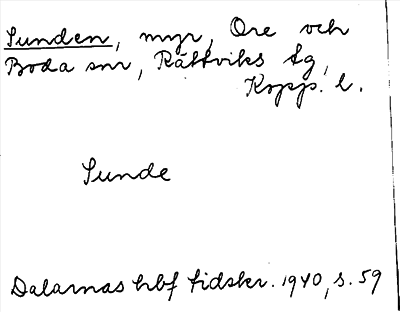 Sunden, myr, Ore och
Boda snr, Rättviks tg,
Kopp. l.
Sunde
Dalarnas hbf tidskr. 1940, s. 59